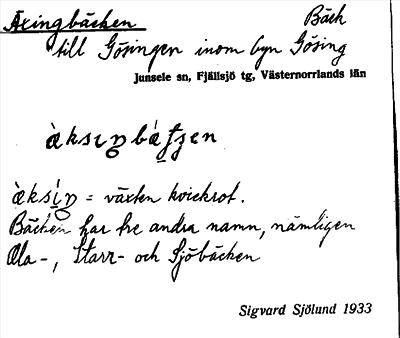 Äxingbäcken Bäck
till Gösingen inom byn Gösing
Junsele sn, Fjällsjö tg, Västernorrlands län
= växten kvickrot.
Bäcken har tre andra namn, nämligen
Ala-, Starr- och Sjöbäcken
Sigvard Sjölund 1933